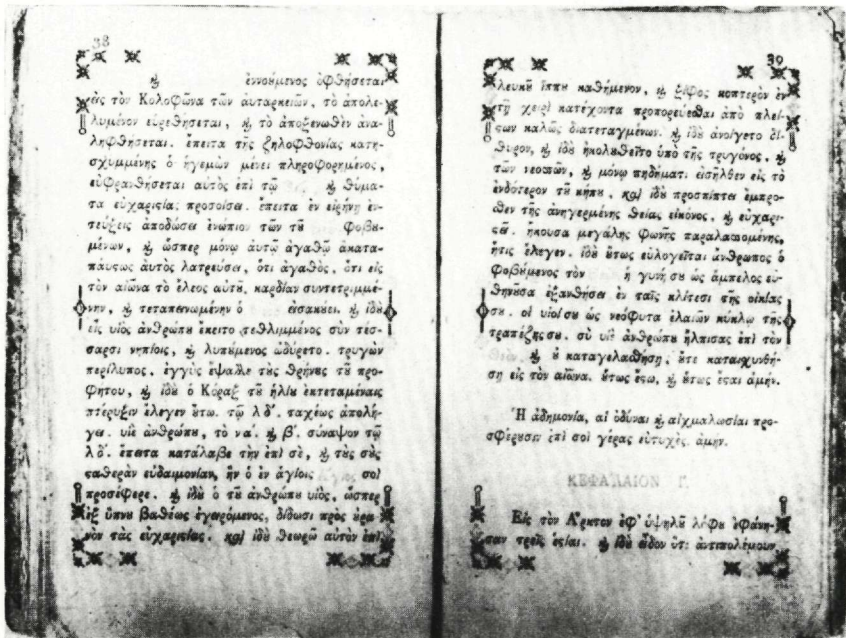 38
ϗ ἐννούμενος ὀφθήσεται
εἰς τὸν Κολοφῶνα τῶν αὐταρκειῶν, τὸ ἀπολε-
λυμένον εὑρεθήσεται, ϗ τὸ ἀποξενωθὲν ἀνα-
ληφθήσεται. ἔπειτα τῆς ζηλοφθονίας κατη-
σχυμμένης ὁ ἡγεμὼν μένει πληροφορημένος,
εὐφρανθήσεται αὐτὸς ἐπὶ τῷ ϗ θύμα-
τα εὐχαριστίας προσοίσει. ἔπειτα ἐν εἰρήνῃ ἐν-
τεύξεις ἀποδώσει ἐνώπιον τῶν τȣ͂ φοβȣ-
μένων, ϗ ὥσπερ μόνῳ αὐτῷ ἀγαθῷ ἀκατα-
παύστως αὐτὸς λατρεύσει, ὅτι ἀγαθὸς, ὅτι εἰς
τὸν αἰῶνα τὸ ἔλεος αὐτȣ͂. καρδίαν συντετριμμέ-
νην, ϗ τεταπεινωμένην ὁ εἰσακούει. ϗ ἰδȣ̀
εἷς υἱὸς ἀνθρώπȣ ἔκειτο τεθλιμμένος σὺν τέσ-
σαρσι νηπίοις, ϗ λυπȣ́μενος ὠδύρετο. τρυγὼν
περίλυπος, ἐγγὺς ἔψαλλε τȣ̀ς θρήνȣς τȣ͂ προ-
φήτου, ϗ ἰδȣ̀ ὁ Κόραξ τȣ͂ ἡλίȣ ἐκτεταμέναις
πτέρυξιν ἔλεγεν ȣ̔́τω. τῷ λδ΄. ταχέως ἀπολή-
γει. υἱὲ ἀνθρώπȣ, τὸ να΄. ϗ β΄. σύναψον τῷ
λδ΄. ἔπειτα κατάλαβε τὴν ἐπὶ σὲ, ϗ τȣ̀ς σȣ̀ς
σαθερὰν εὐδαιμονίαν, ἣν ὁ ἐν ἁγίοις σοὶ
προσέφερε. ϗ ἰδȣ̀ ὁ τȣ͂ ἀνθρώπȣ υἱὸς, ὥσπερ
ἐξ ὕπνȣ βαθέως ἐγειρόμενος, δίδωσι πρὸς ȣ̓ρα-
νὸν τὰς εὐχαριστίας. καὶ ἰδȣ̀ θεωρῶ αὐτὸν ἐπὶ
39
λευκȣ͂ ἵππȣ καθήμενον, ϗ ξίφος κοπτερὸν ἐν
τῇ χειρὶ κατέχοντα προπορεύεσθαι ἀπὸ πλεί-
στων καλῶς διατεταγμένων. ϗ ἰδȣ̀ ἀνοίγετο δί-
θυρον, ϗ ἰδȣ̀ ἠκολȣθεῖτο ὑπὸ τῆς τρυγόνος, ϗ
τῶν νεοσσῶν, ϗ μόνῳ πηδήματι εἰσῆλθεν εἰς τὸ
ἐνδότερον τȣ͂ κήπȣ, καὶ ἰδȣ̀ προσπίπτει ἔμπρο-
σθεν τῆς ἀνηγερμένης θείας εἰκόνος, ϗ εὐχαρι-
στεῖ. ἤκουσα μεγάλης φωνῆς παραλαιομένης,
ἥτις ἔλεγεν. ἰδȣ̀ ȣ̔́τως εὐλογεῖται ἄνθρωπος ὁ
φοβȣ́μενος τὸν ἡ γυνή σȣ ὡς ἄμπελος εὐ-
θηνȣ͂σα ἐξανθήσει ἐν ταῖς κλίτεσι τῆς οἰκίας
σȣ. οἱ υἱοί σȣ ὡς νεόφυτα ἐλαιῶν κύκλῳ τῆς
τραπέζης σȣ. σὺ υἱὲ ἀνθρώπȣ ἤλπισας ἐπὶ τὸν
ϗ ȣ̓ καταγελασθήσῃ, ȣ̓́τε καταισχυνθή-
σῃ εἰς τὸν αἰῶνα. ȣ̔́τως ἔστω, ϗ ȣ̔́τως ἔσται ἀμήν.
Ἡ ἀδημονία, αἱ ὀδύναι ϗ αἰχμαλωσίαι προ-
σφέρȣσιν ἐπὶ σοὶ γέρας εὐτυχὲς. ἀμήν.
ΚΕΦΑΛΑΙΟΝ Γ.
Εἰς τὸν Ἄρκτον ἐφ' ὑψηλȣ͂ λόφȣ ἐφάνη-
σαν τρεῖς ἑστίαι. ϗ ἰδȣ̀ εἶδον ὅτι ἀντιπολέμουν